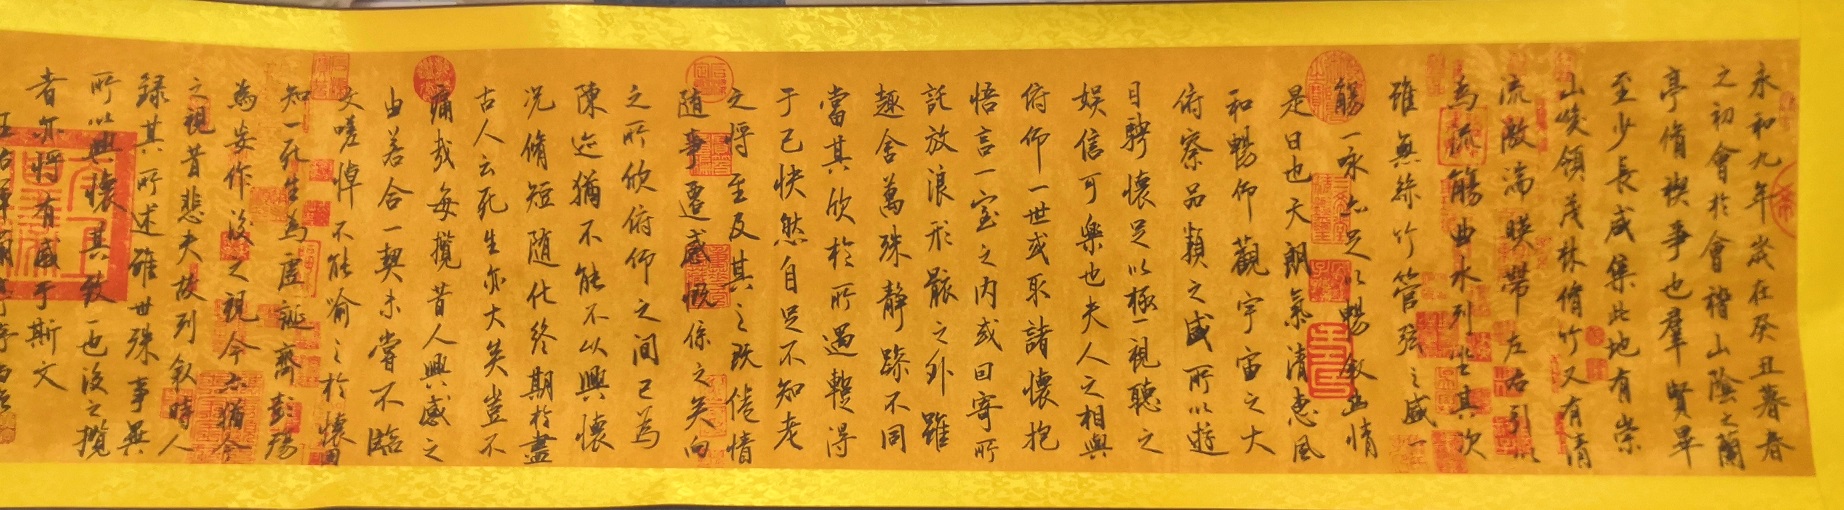 永和九年歲在癸丑暮春
之初會於會稽山陰之蘭
亭脩禊事也羣賢畢
至少長咸集此地有崇
山峻領茂林脩竹又有清
流激湍暎帶左右引以
為流觴曲水列坐其次
雖無絲竹管弦之盛一
觴一詠亦足以暢敘幽情
是日也天朗氣清惠風
和暢仰觀宇宙之大
俯察品類之盛所以遊
目騁懷足以極視聽之
娛信可樂也夫人之相與
俯仰一世或取諸懷抱
悟言一室之內或因寄所
託放浪形骸之外雖
趣舍萬殊靜躁不同
當其欣於所遇蹔得
于己快然自足不知老
之將至及其之既倦情
随事遷感慨係之矣向
之所欣俯仰之間已為
陳迹猶不能不以興懷
況脩短随化終期於盡
古人云死生亦大矣豈不
痛哉每攬昔人興感之
由若合一契未嘗不臨
文嗟悼不能喻之於懷固
知一死生為虛誕齊彭殤
為妄作後之視今亦猶今
之視昔悲夫故列敘時人
錄其所述雖世殊事異
所以興懷其致一也後之攬
者亦將有感于斯文